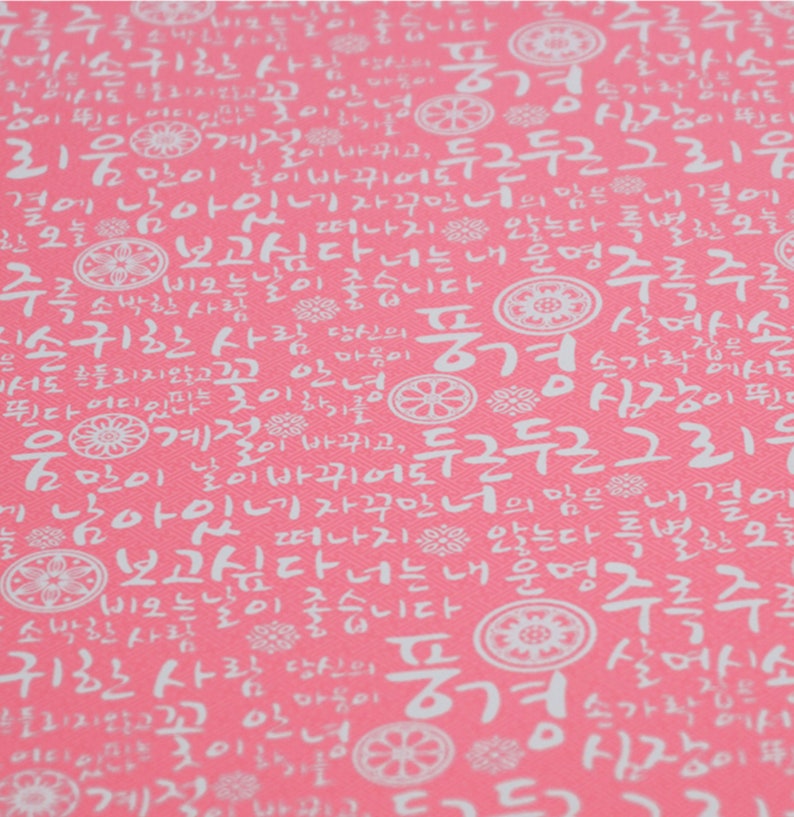 주룩 주룩 비오는날이 좋습니다 운명 주룩 주룩
소박한 사람
살며시손 귀한 사람 당신의 풍경 살며시손
잡은 마음이 손가락 잡은
에서도 흔들리지않고꽃이 안녕 에서도
심장이 뛴다 어디있나 피는 하기를 심장이 뛴다
그리움 계절이 바뀌고, 두근두근 그리움
만이 날이바뀌어도
결에 남아있네 자꾸만너의 맘은 내 결에
특별한오늘 떠나지 않는다 특별한오늘
보고싶다너는내 운명 주룩 주룩
주룩 비오는날이 좋습니다
소박한 사람
손귀한 사람 당신의 풍경 살며시손
마음이 손가락 잡은
에서도 흔들리지않고꽃이 안녕 에서도
뛴다 어디있나 피는 하기를 심장이 뛴다
움 계절이 바뀌고, 두근두근 그리움
만이 날이바뀌어도
에 남아있네 자꾸만너의 맘은 내 결에
떠나지 않는다 특별한오늘
보고싶다너는내 운명 주룩 주룩
비오는날이 좋습니다
소박한 사람
귀한 사람 당신의 풍경 살며시손
마음이 손가락 잡은
흔들리지않고꽃이 안녕 에서
어디있나 피는 하기를 심장이 뛴
계절이 바뀌고, 두근두근 그리움